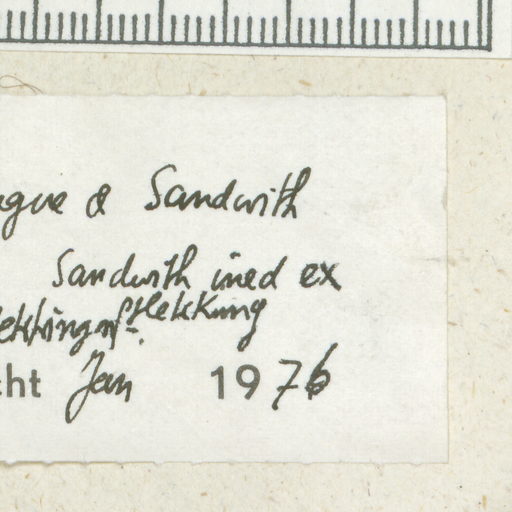 ague & Sandwith
Sandwith ined ex
Hekking
cht Jan 1976